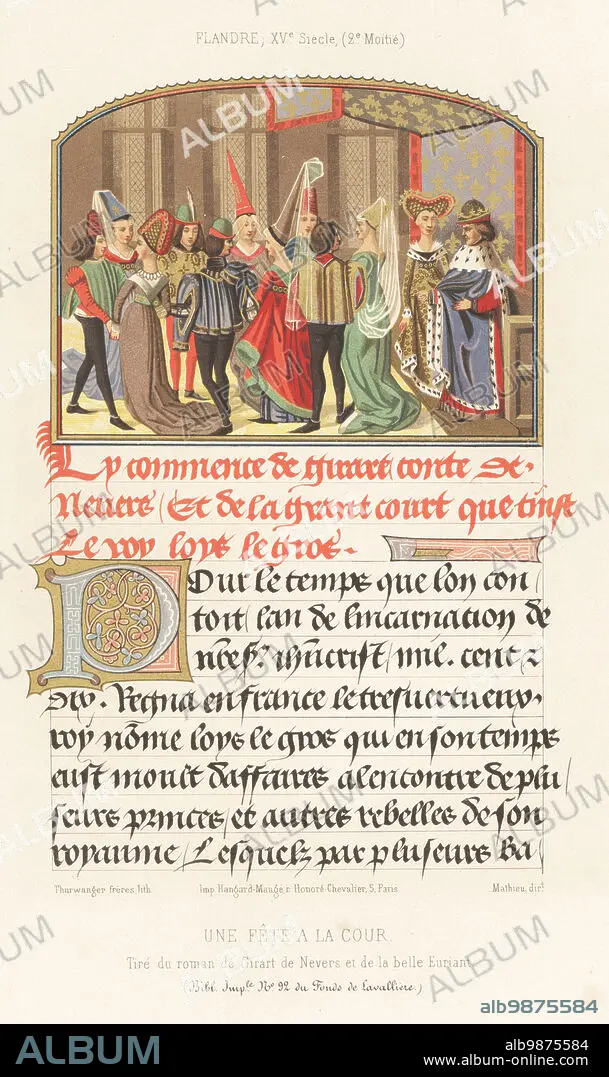 FLANDRE, XVe Siecle, (2e Moitié)
Cy commence de girart conte de
Nevers / Et de la grant court que tinst
Le roy loys le gros.
Pour le temps que lon con /
toit / lan de lincarnation de
nre sr. ihucrist / mil. cent z
dix. Regna en france le tresvertueux.
roy nōme loys le gros qui en son temps
eust moult daffaires alencontre de plu /
seurs princes / et autres rebelles de son
royaume / Lesquelz par pluseurs ba /
Thurwanger frères, lith. Imp. Hangard-Maugé, r. Honoré-Chevalier, 5, Paris. Mathieu, dirt.
UNE FÊTE A LA COUR.
Tiré du roman de Girart de Nevers et de la belle Euriant.
(Bibl. Imple No 92 du Fonds de Lavallière.)
alb9875584
ALBUM
alb9875584
www.album-online.com